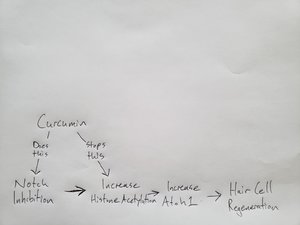 Curcumin
Does
this
stops
this
Notch
Inhibition
Increase
Histone Acetylation
Increase
Atoh1
Hair Cell
Regeneration